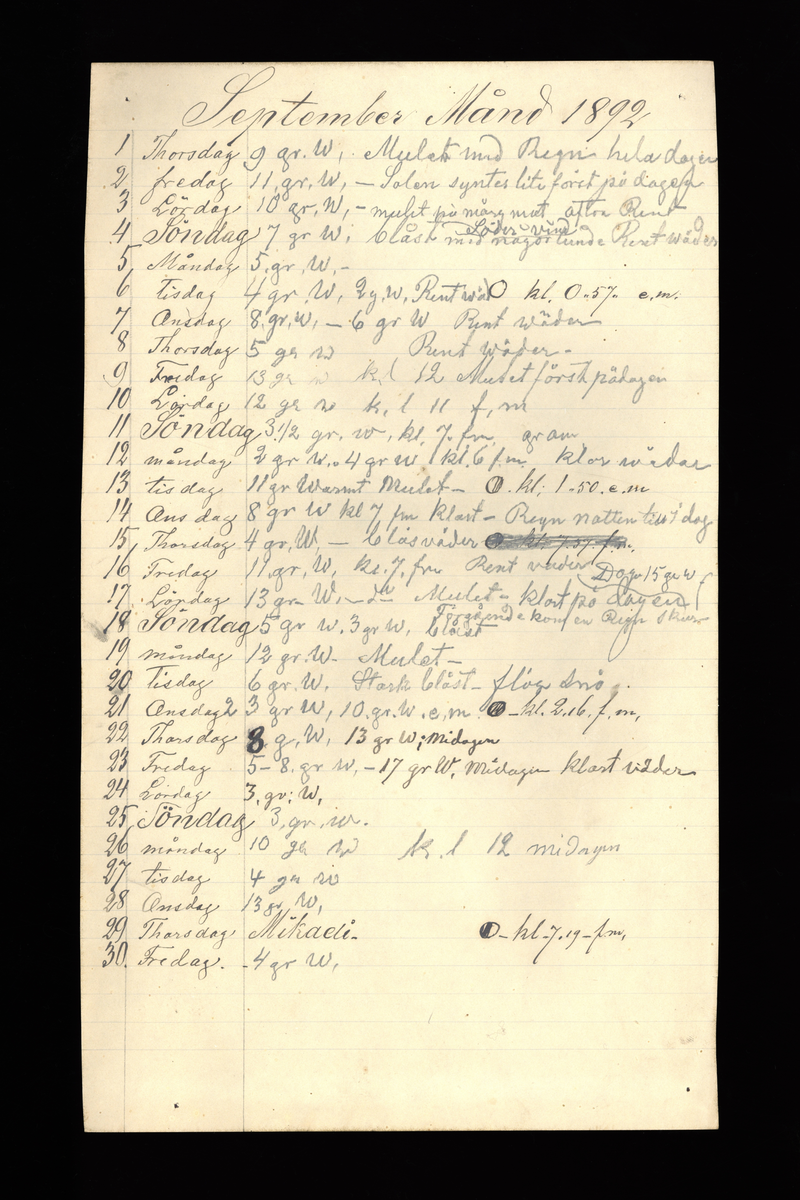 September Månd 1892
1 Thorsdag 9 gr. W, Mulet med Regn hela dagen
2 fredag 11, gr, W, – Solen syntes lite först på dagen
3 Lördag 10 gr, W, – mulet på mårg mot afton Rent
Söder vind
4 Söndag 7 gr W; blåst med någorlunde Rent wäder
5 Måndag 5, gr, W, –
6 tisdag 4 gr. W, 2 g, W, Rent wäd O kl. 0.57. e.m.
7 Onsdag 8, gr, w, – 6 gr W Rent wäder
8 Thorsdag 5 gr w Rent Wäder –
9 Fredag 13 gr w k, l 12 Mulet först pådagen
10 Lördag 12 gr w k, l 11 f, m
11 Söndag 3 1/2 gr. w, kl. 7. fm,
12 måndag 2 gr w.. 4 gr w kl. 6 f.m. klar wädar
13 tisdag 11 gr Warmt Mulet – O. kl; 1-50. e. m
14 Onsdag 8 gr W kl 7 fm klart – Regn natten till i dag
15, Thorsdag 4 gr, W, – blåsväder O kl. 7.37 f.m,
16 Fredag 11, gr, W, kl. 7, fm Rent wäder Dag 15 gr w
17. Lördag 13 gr – W, – Mulet – klart på dagen
Forgående kom en Regn skur
18 Söndag 5 gr w. 3 gr W, blåst
19 måndag 12 gr. W – Mulet –
20 tisdag 6 gr. W. Stark blåst – flög snö.
21 Onsdag 2 3 gr W, 10. gr. W. e, m O – kl. 2.16. f. m,
22 Thorsdag 8 g, W, 13 gr W; Midagen
23 Fredag 5 – 8. gr W, – 17 gr W, Midagen klart väder
24 Lördag 3, gr; W,
25, Söndag 3, gr, w.
26 måndag 10 gr w k. l 12 midagen
27 tisdag 4 gr w
28 Onsdag 13 gr, W,
29, Thorsdag Mikaeli – O – kl – 7.19 – f.m,
30. Fredag. – 4 gr W,